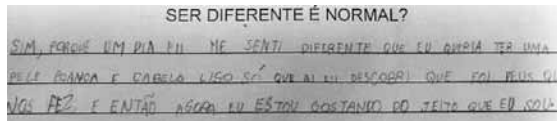 SER DIFERENTE É NORMAL?
SIM, PORQUE UM DIA EU ME SENTI DIFERENTE QUE EU QUERIA TER UMA
PELE BRANCA E CABELO LISO SÓ QUE AI EU DESCOBRI QUE FOI DEUS Q
NOS FEZ E ENTÃO AGORA EU ESTOU GOSTANDO DO JEITO QUE EU SOU